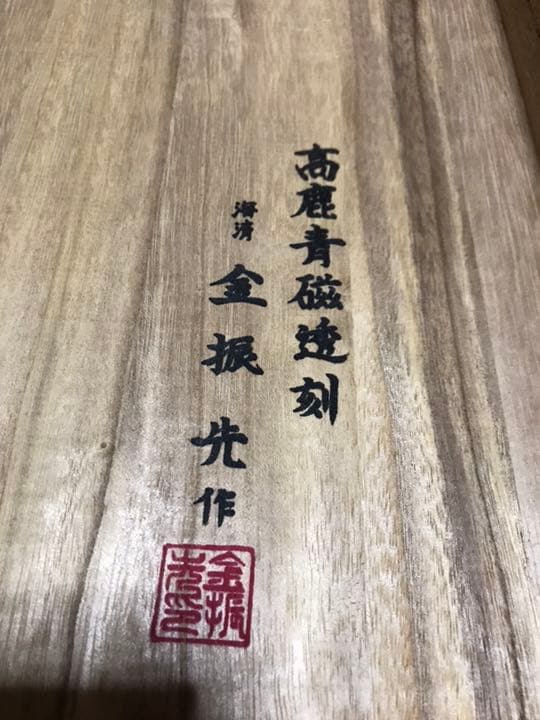 高鹿青磁透刻
海清 金振先作
金振
先印